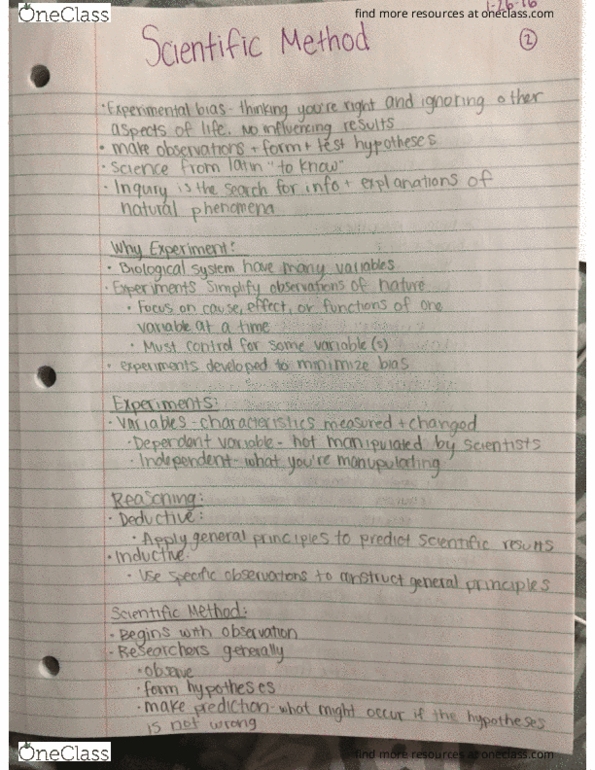 OneClass
find more resources at oneclass.com
1-26-16
Scientific Method
2
• Experimental bias - thinking you're right and ignoring other
aspects of life. No influencing results
• make observations + form + test hypotheses
• Science from latin "to know"
• Inqury is the search for info + explanations of
natural phenomena
Why Experiment?
• Biological system have many variables
• Experiments simplify observations of nature
• Focus on cause, effect, or functions of one
variable at a time
• Must control for some variable(s)
• experiments developed to minimize bias
Experiments:
• Variables - characteristics measured + changed
• Dependent variable - not manipulated by scientists
• Independent - what you're manupulating
Reasoning:
• Deductive:
• Apply general principles to predict scientific results
• Inductive:
• Use specific observations to construct general principles
Scientific Method:
• Begins with observation
• Researchers generally
• observe
• form hypotheses
• make prediction - what might occur if the hypotheses
is not wrong
OneClass
find more resources at oneclass.com